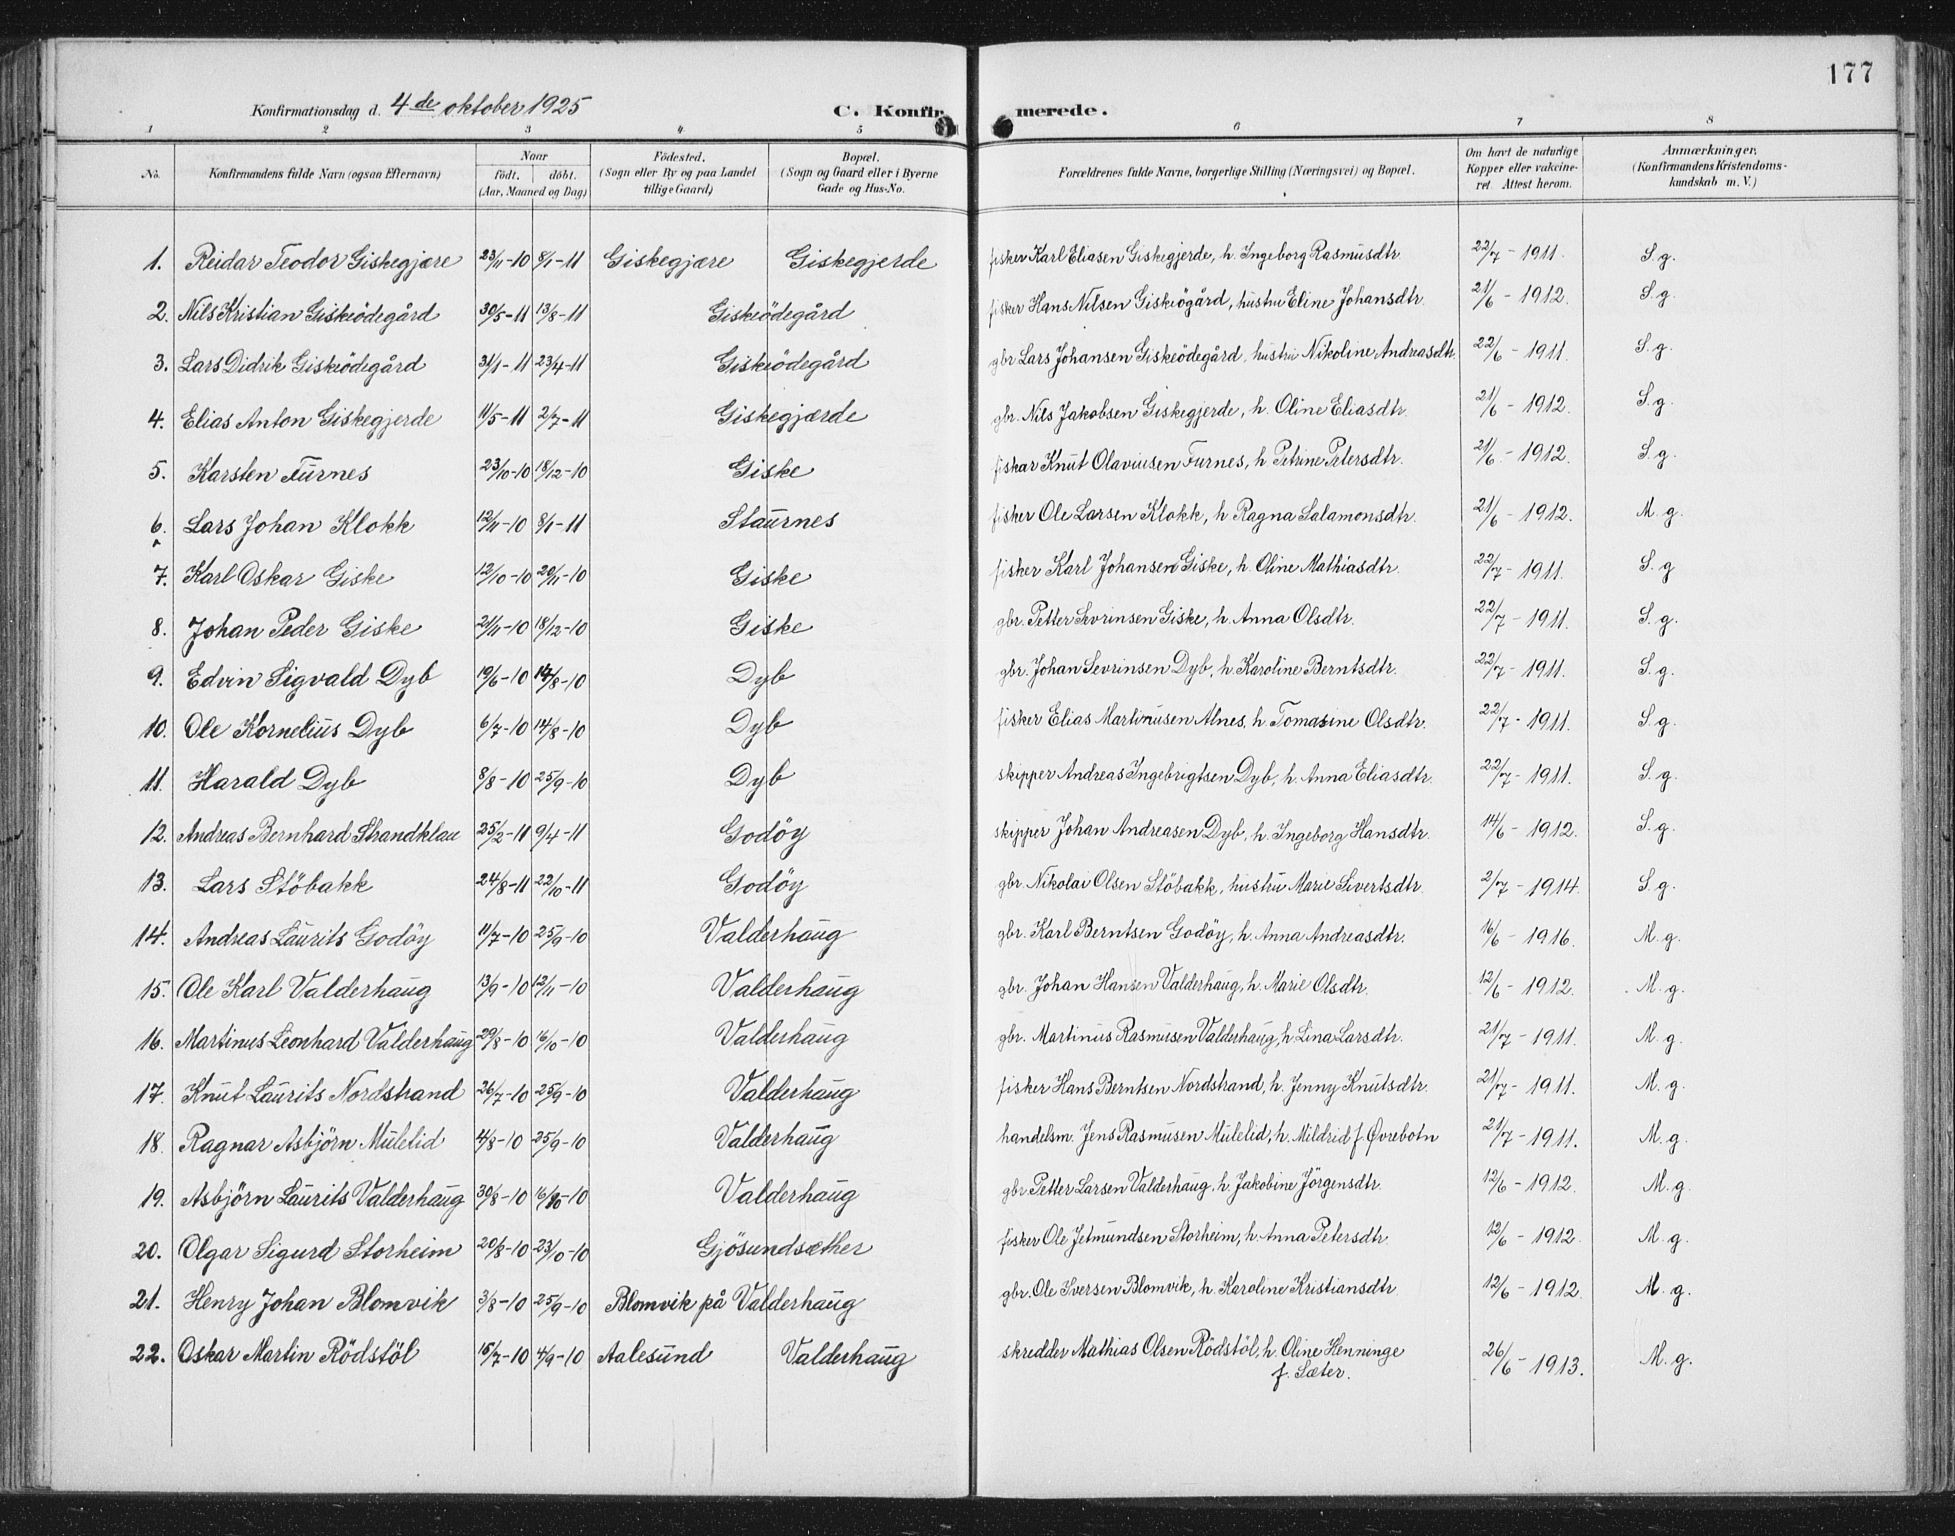 177
Konfirmationsdag d. 4de oktober 1925 C. Konfirmerede.
1 2 3 4 5 6 7 8
No. Konfirmandens fulde Navn (ogsaa Efternavn) Naar født. døbt. (Aar, Maaned og Dag) Födested. (Sogn eller By og paa Landet tillige Gaard) Bopæl. (Sogn og Gaard eller i Byerne Gade og Hus-No. Forældrenes fulde Navne, borgerlige Stilling (Næringsvei) og Bopæl. Om havt de naturlige Kopper eller vakcineret. Attest herom. Anmærkninger, (Konfirmandens Kristendomskundskab m. V.)
1. Reidar Teodor Giskegjære 23/11-10 8/1-11 Giskegjære Giskegjerde fisker Karl Eliasen Giskegjerde, h. Ingeborg Rasmusdtr. 22/7-1911. S. g.
2. Nils Kristian Giskeödegård 30/5-11 13/8-11 Giskeödegård fisker Hans Nilsen Giskeögård, hustru Eline Johansdtr. 21/6-1912. S. g.
3. Lars Didrik Giskeödegård 31/1-11 23/4-11 Giskeödegård gbr Lars Johansen Giskeödegård, hustru Nikoline Andreasdtr. 22/6-1911. S. g.
4. Elias Anton Giskegjerde 11/5-11 2/7-11 Giskegjærde gbr. Nils Jakobsen Giskegjerde, h. Oline Eliasdtr. 21/6-1912. S. g.
5. Karsten Furnes 23/10-10 18/12-10 Giske fiskar Knut Olaviusen Furnes, h. Petrine Petersdtr. 21/6-1912. S. g.
6. Lars Johan Klokk 12/11-10 8/1-11 Staurnes fisker Ole Larsen Klokk, h Ragna Salamonsdtr. 21/6-1912. M. g.
7. Karl Oskar Giske 12/10-10 20/11-10 Giske fisker Karl Johansen Giske, h. Oline Mathiasdtr. 22/7-1911. S. g
8. Johan Peder Giske 21/11-10 18/12-10 Giske gbr. Petter Sevrinsen Giske, h. Anna Olsdtr. 22/7-1911. S. g.
9. Edvin Sigvald Dyb 19/6-10 14/8-10 Dyb gbr. Johan Sevrinsen Dyb, h. Karoline Berntsdtr. 22/7-1911. S. g.
10. Ole Kornelius Dyb 6/7-10 14/8-10 Dyb fisker Elias Martinusen Alnes, h Tomasine Olsdtr. 22/7-1911. S. g.
11. Harald Dyb 8/8-10 25/9-10 Dyb skipper Andreas Ingebrigtsen Dyb, h. Anna Eliasdtr. 22/7-1911. S. g.
12. Andreas Bernhard Strandklau 25/2-11 9/4-11 Godöy skipper Johan Andreasen Dyb, h. Ingeborg Hansdtr. 14/6-1912. S. g.
13. Lars Stöbakk 24/8-11 22/10-11 Godöy gbr. Nikolai Olsen Stöbakk, hustru Marie Sivertsdtr. 2/7-1914. S. g.
14. Andreas Laurits Godöy 11/7-10 25/9-10 Valderhaug gbr. Karl Berntsen Godöy, h. Anna Andreasdtr. 16/6-1916. M. g.
15. Ole Karl Valderhaug 13/9-10 12/11-10 Valderhaug gbr. Johan Hansen Valderhaug, h. Marie Olsdtr. 12/6-1912. M. g.
16. Martinus Leonhard Valderhaug 29/8-10 16/10-10 Valderhaug gbr. Martinus Rasmusen Valderhaug, h. Lina Larsdtr. 21/7-1911. M. g.
17. Knut Laurits Nordstrand 26/7-10 25/9-10 Valderhaug fisker Hans Berntsen Nordstrand, h. Jenny Knutsdtr. 21/7-1911. M. g.
18. Ragnar Asbjörn Mulelid 4/8-10 25/9-10 Valderhaug handelsm. Jens Rasmusen Mulelid, h. Mildrid f. Øvrebotn 21/7-1911. M. g.
19. Asbjörn Laurits Valderhaug 30/8-10 16/10-10 Valderhaug gbr Petter Larsen Valderhaug, h. Jakobine Jörgensdtr. 12/6-1912. M. g.
20. Olgar Sigurd Storheim 20/8-10 23/10-10 Gjösundsæther fisker Ole Jetmundsen Storheim, h. Anna Petersdtr 12/6-1912. M. g.
21. Henry Johan Blomvik 3/8-10 25/9-10 Blomvik på Valderhaug gbr. Ole Iversen Blomvik, h. Karoline Kristiansdtr. 12/6-1912. M. g.
22. Oskar Martin Rödstöl 15/7-10 4/9-10 Aalesund Valderhaug skredder Mathias Olsen Rödstöl, h. Oline Henninge 26/6-1913. M. g.
f. Sæter.